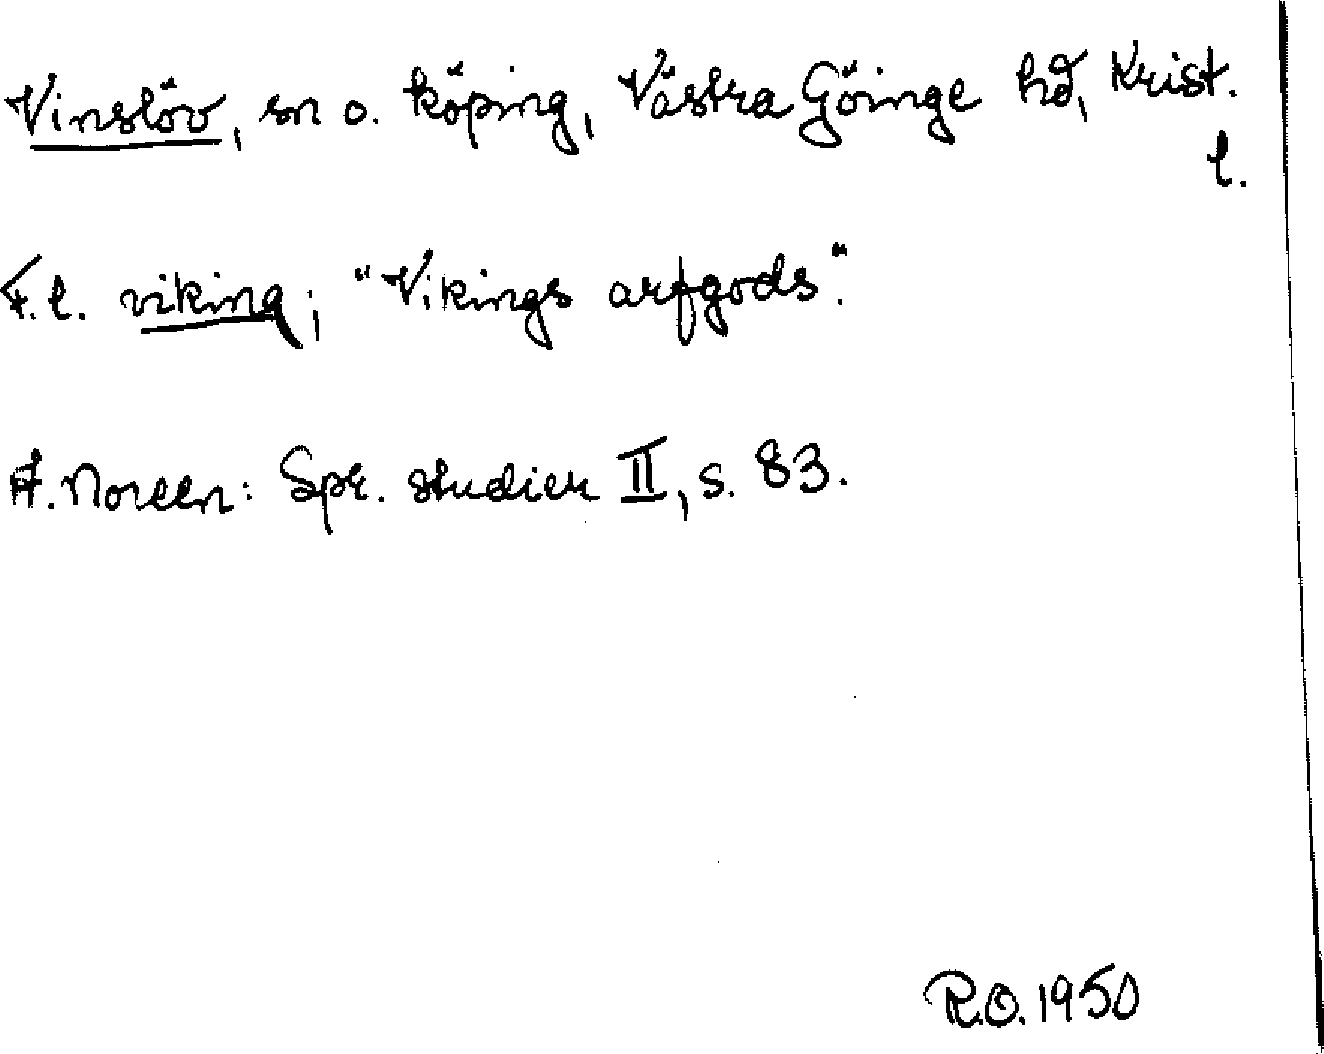 Vinslöv, sn o. köping, Västra Göinge hd, Krist.
l.
F.l. viking; "Vikings arfgods".
A. Noreen: Spr. studier II, s. 83.
R.O. 1950